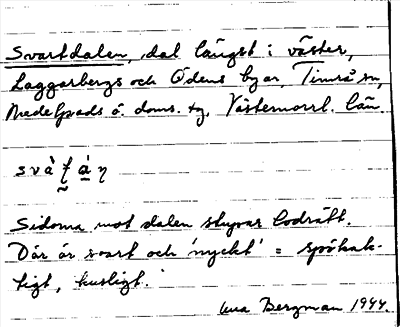 Svartdalen, dal längst i väster,
Laggarbergs och Ödens byar, Timrå sn,
Medelpads ö. doms. tg, Västernorrl. län.
Sidorna mot dalen stupar lodrätt.
Där är svart och 'nyckt' = spökak-
tigt, kusligt.
Bergman 1944.